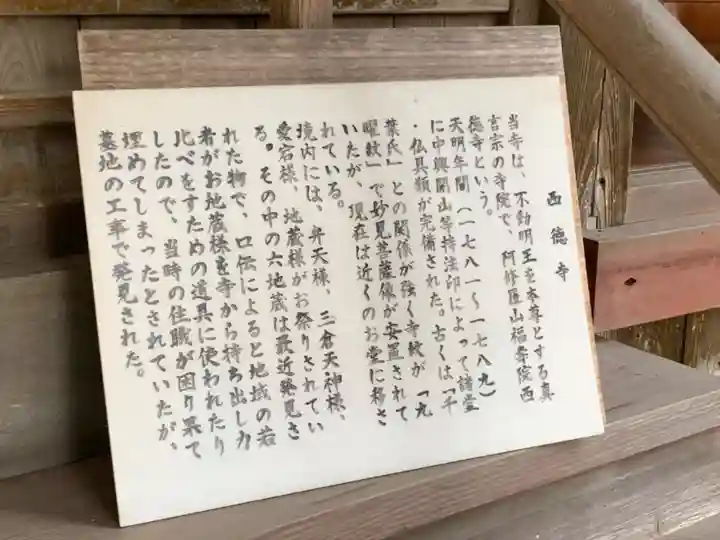 西徳寺
当寺は、不動明王を本尊とする真
言宗の寺院で、阿修羅山福寿院西
徳寺という。
天明年間（一七八一〜一七八九）
に中興開山等持法印によって諸堂
・仏具類が完備された。古くは「千
葉氏」との関係が強く寺紋が「九
曜紋」で妙見菩薩像が安置されて
いたが、現在は近くのお堂に移さ
れている。
境内には、弁天様、三倉天神様、
愛宕様、地蔵様がお祭りされてい
る。その中の六地蔵は最近発見さ
れた物で、口伝によると地域の若
者がお地蔵様を寺から持ち出し力
比べをするための道具に使われたり
したので、当時の住職が困り果て
埋めてしまったとされていたが、
墓地の工事で発見された。